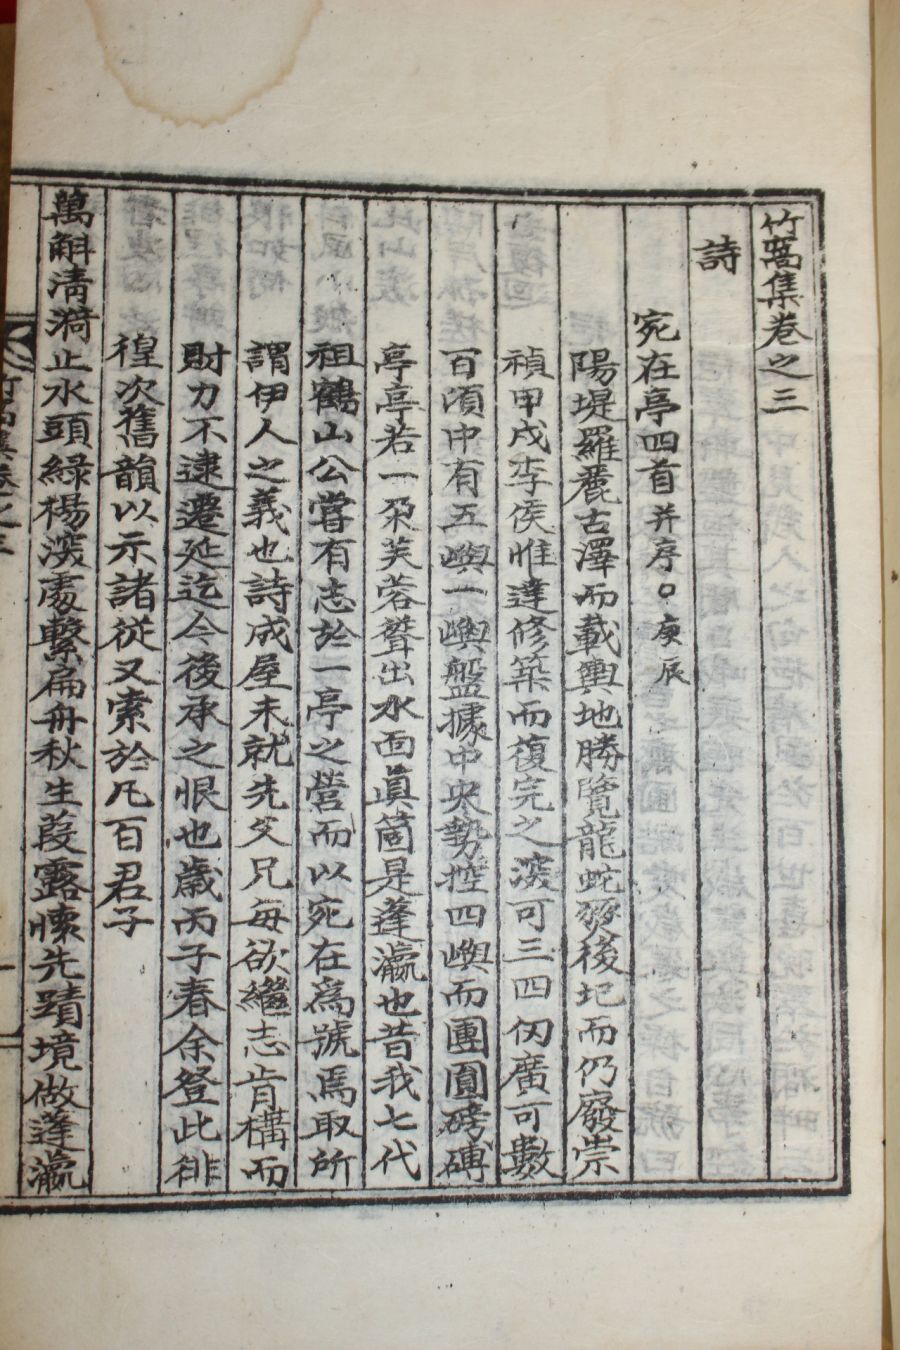 竹窩集卷之三
詩
宛在亭四首并序○庚辰
陽堤羅麗古澤而載輿地勝覽龍蛇燹後圮而仍廢崇
禎甲戌李侯惟達修築而復完之深可三四仞廣可數
百頃中有五嶼一嶼盤據中央勢控四嶼而團圓磅礴
亭亭若一朶芙蓉聳出水面眞箇是蓬瀛也昔我七代
祖鶴山公嘗有志於一亭之營而以宛在爲號焉取所
謂伊人之義也詩成屋未就先父兄每欲繼志肯構而
財力不逮遷延迄今後承之恨也歲丙子春余登此徘
徨次舊韻以示諸從又索於凡百君子
萬斛清漪止水頭綠楊深處繫扁舟秋生葭露懷先蹟境做蓬瀛